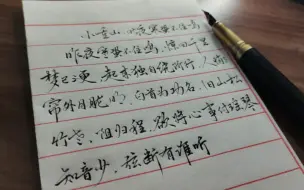 小重山 昨夜寒蛩不住鸣
昨夜寒蛩不住鸣，惊回千里
梦已三更，起来独自绕阶行，人悄悄
帘外月胧明，白首为功名，旧山松
竹老，阻归程，欲将心事付瑶琴
知音少，弦断有谁听